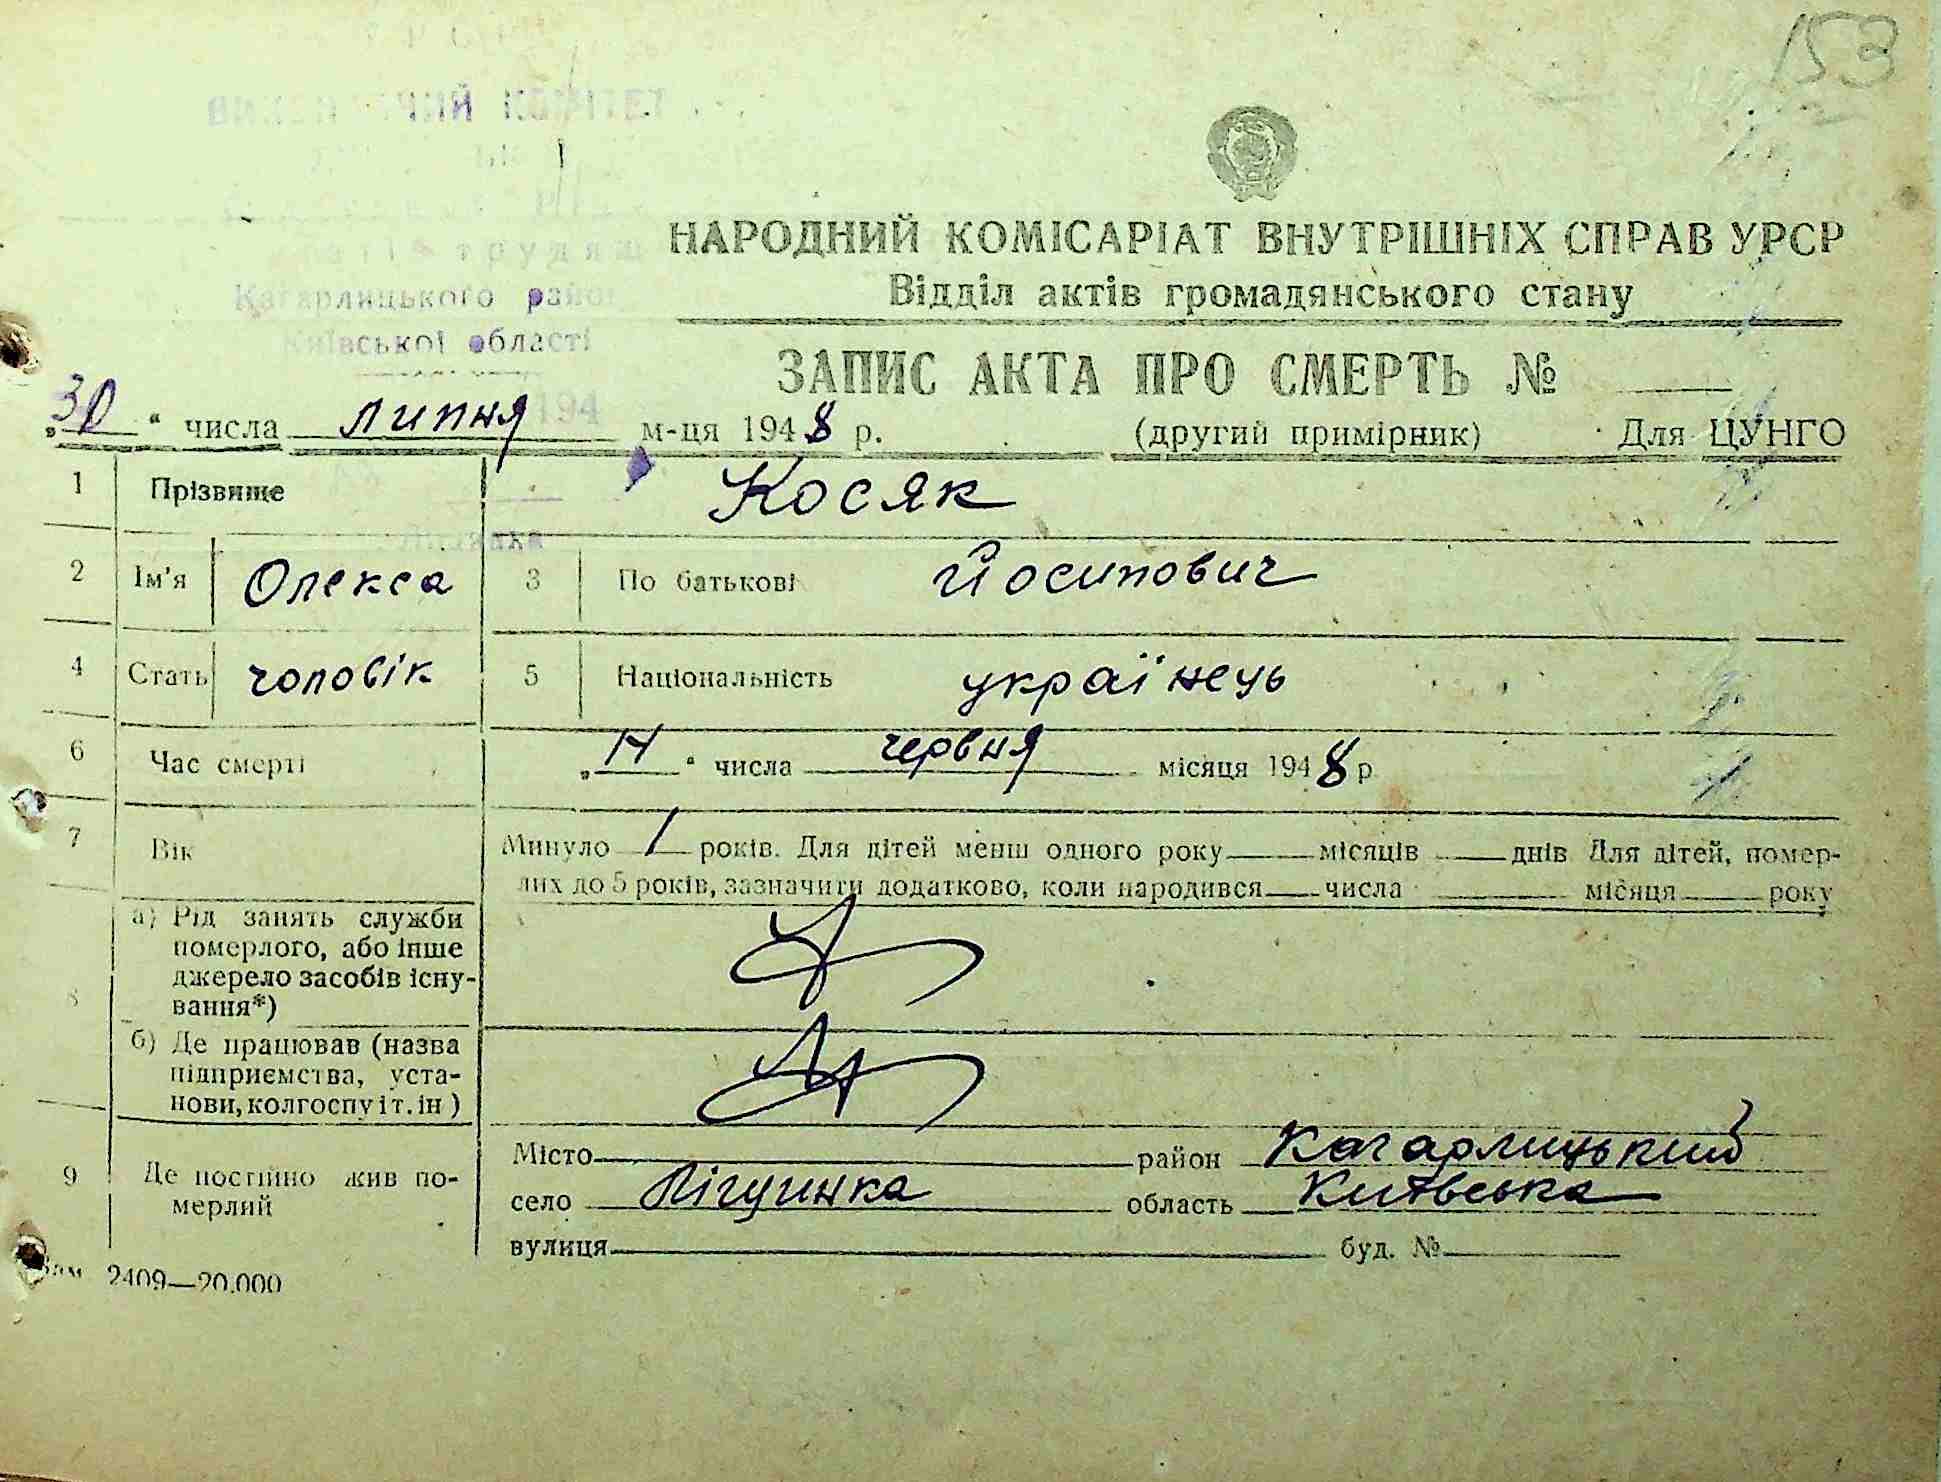 153
ВИКОНАВЧИЙ КОМІТЕТ
НАРОДНИЙ КОМІСАРІАТ ВНУТРІШНІХ СПРАВ УРСР
Відділ актів громадянського стану
Кагарлицького
Київської області
ЗАПИС АКТА ПРО СМЕРТЬ №
194
„30“ числа липня м-ця 1948 р. (другий примірник) Для ЦУНГО
1 Прізвище Косяк
2 Ім'я Олекса 3 По батькові Йосипович
4 Стать чоловік 5 Національність українець
6 Час смерті „14“ числа червня місяця 1948 р
7 Вік Минуло 1 років. Для дітей менш одного року місяців днів Для дітей, помер-
лих до 5 років, зазначити додатково, коли народився числа місяця року
8 а) Рід занять служби
померлого, або інше
джерело засобів існу-
вання*)
б) Де працював (назва
підприємства, уста-
нови, колгоспу і т. ін )
9 Де постійно жив по-
мерлий
Місто район Кагарлицький
село область Київська
вулиця буд. №
Зам 2409—20.000